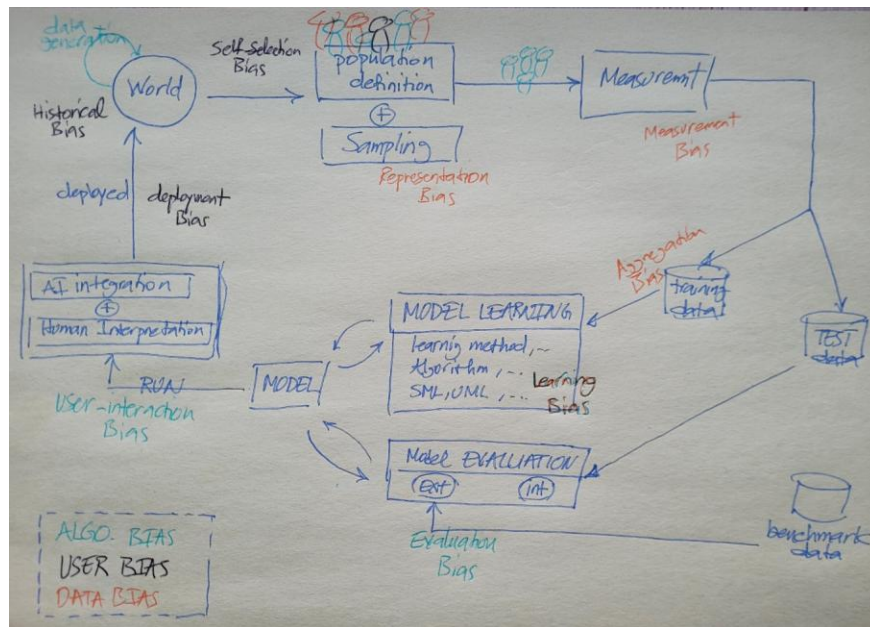 data
generation
World
Historical
Bias
Self-Selection
Bias
population
definition
+
Sampling
Representation
Bias
Measuremnt
Measurement
Bias
deployed
deployment
Bias
AI integration
+
Human Interpretation
RUN
User-interaction
Bias
MODEL
MODEL LEARNING
learnig method, ...
Algorithm, ...
SML, UML, ...
Learning
Bias
Aggregation
Bias
training
data
TEST
data
Model EVALUATION
Ext
int
Evaluation
Bias
benchmark
data
ALGO. BIAS
USER BIAS
DATA BIAS